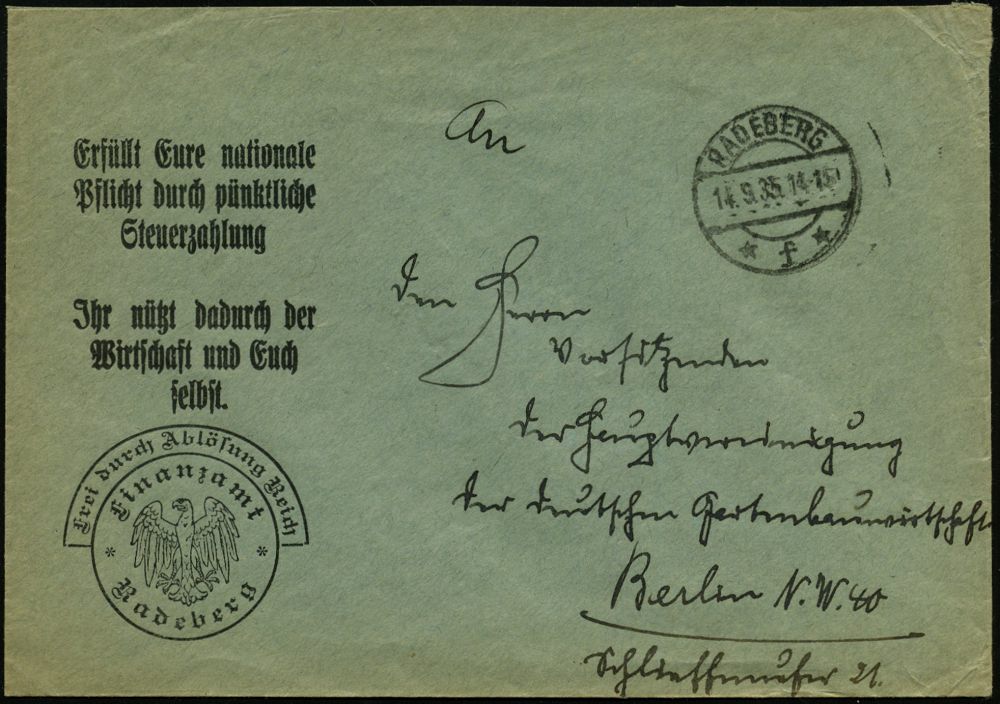 Erfüllt Eure nationale
Pflicht durch pünktliche
Steuerzahlung
Ihr nützt dadurch der
Wirtschaft und Euch
selbst.
Frei durch Ablösung Reich
Finanzamt
* *
Radeberg
RADEBERG
14.9.35.14-15
* f *
An
den Herrn
Vorsitzenden
der Hauptvereinigung
der deutschen Gartenbauwirtschaft
Berlin N.W.40
Schlieffenufer 21.